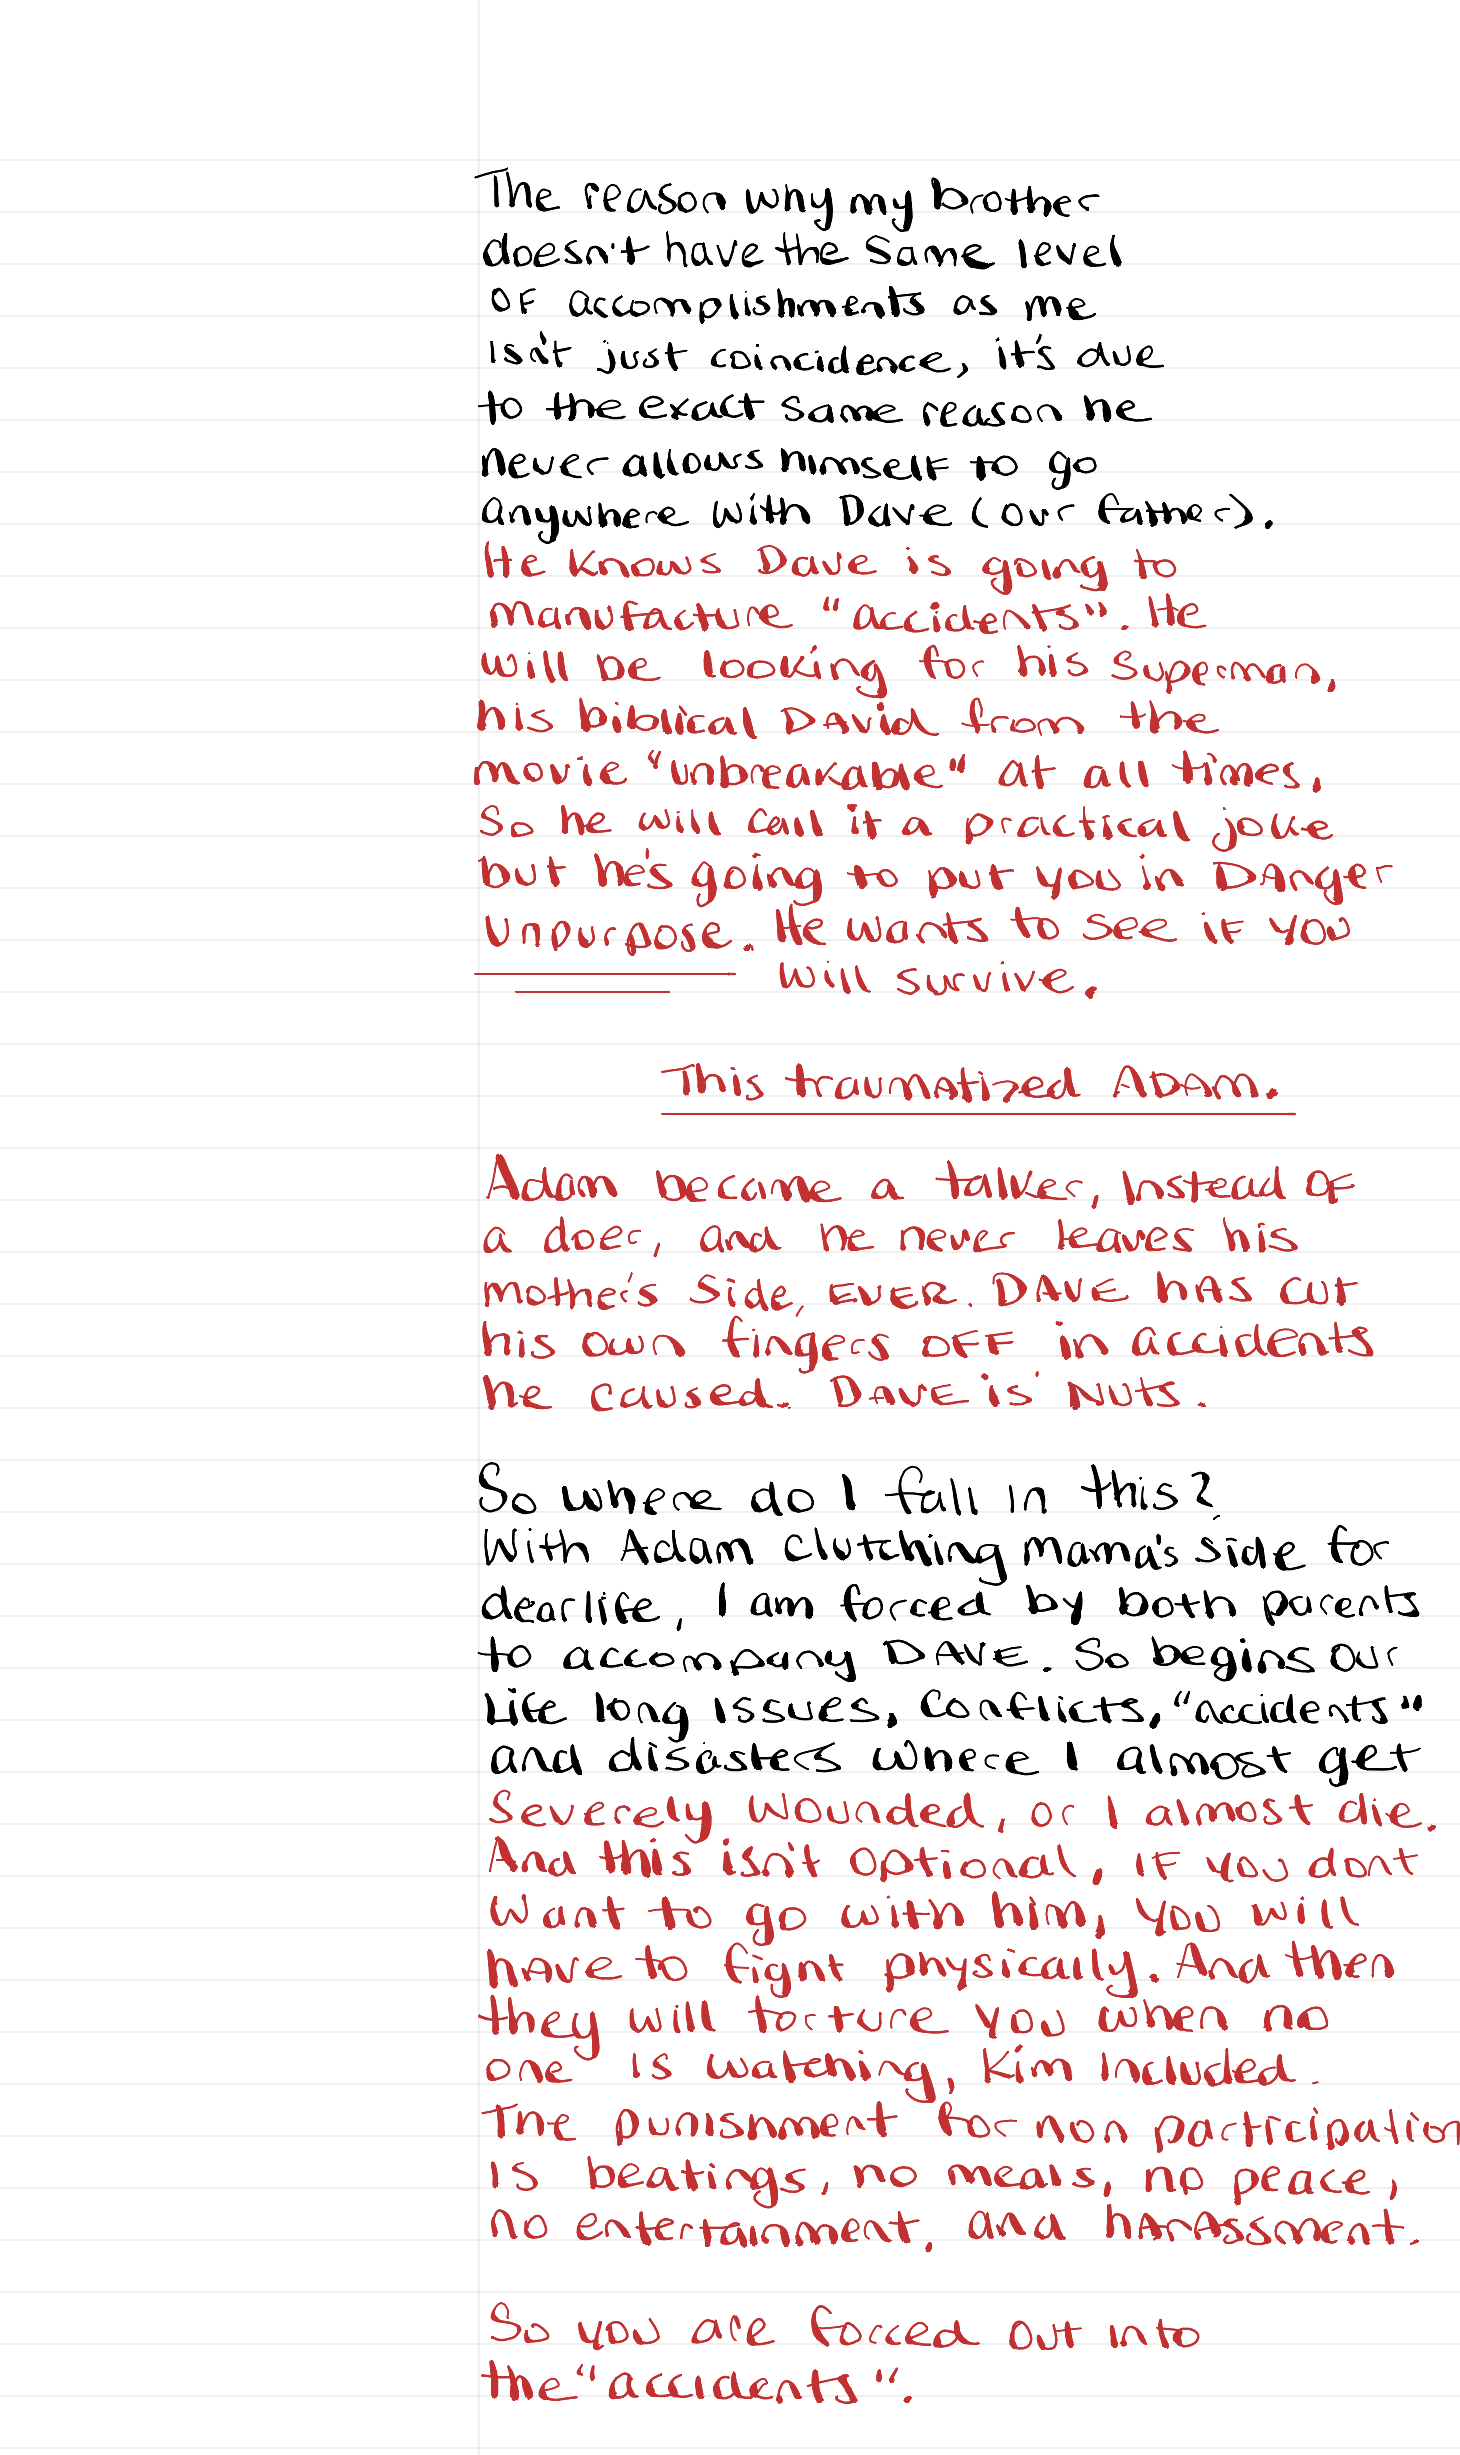 The reason why my brother
doesn't have the same level
OF accomplishments as me
isn't just coincidence, it's due
to the exact same reason he
never allows himself to go
anywhere with Dave (our father).
He knows Dave is going to
manufacture "accidents". He
will be looking for his Superman,
his biblical DAvid from the
movie "unbreakable" at all times,
So he will call it a practical joke
but he's going to put you in DAnger
Unpurpose. He wants to see iF you
will survive.
This traumatized ADAM.
Adam became a talker, instead OF
a doer, and he never leaves his
mother's side, EVER. DAVE hAS cut
his own fingers OFF in accidents
he caused. DAVE is NUTS.
So where do I fall in this?
With Adam clutching mama's side for
dear life, I am forced by both parents
to accompany DAVE. So begins our
Life long issues, conflicts, "accidents"
and disasters where I almost get
severely wounded, or I almost die.
And this isn't optional, IF you dont
want to go with him, you will
hAve to fight physically. And then
they will torture you when no
one is watching, Kim included.
The punishment for non participation
is beatings, no meals, no peace,
no entertainment, and hArAssment.
So you are forced out into
the "accidents".